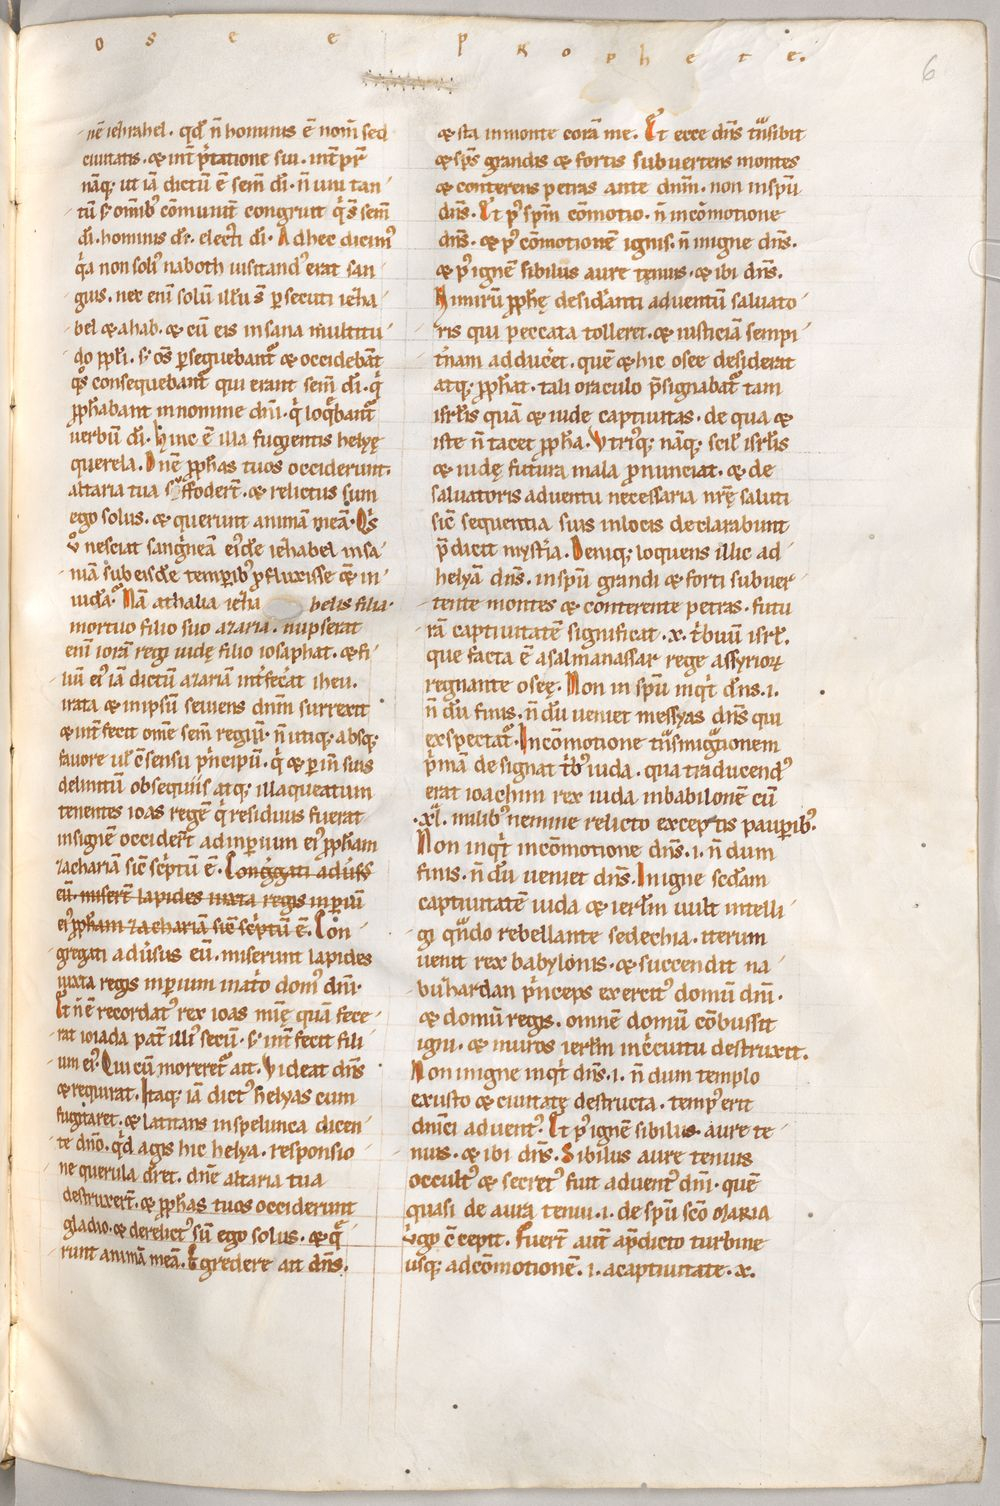 o s e e p R o p h e t e.
6
nē ieʒrahel. qd̄ n̄ hominis ē nom̄ sed
ciuitatis. & int̄ p̄tatione sui. int̄pr̄
nāq; ut iā dictū ē sem̄ dī. n̄ uni tan
tū s; omīb; cōmunit̄ congruit q̄ s̄ sem̄
dī. hominis dr̄. electi dī. Adhec dicim᷒
q̄a non soli᷒ naboth uisitand᷒ erat san
guis. nec eni᷒ solū illū s̄ persecuti ieʒa
bel & ahab. & cū eis insana multitu
do pp̄li. s; os̄ p̄sequebant᷒ & occidebāt
q̄s consequebant᷒ qui erant sem̄ dī. q̄
pp̄habant in nomine dn̄i. q̄ loq̄bant᷒
uerbū dī. Hinc ē illa fugientis helyę
querela. Dn̄e pp̄has tuos occiderunt.
altaria tua suffoder̄t. & relictus sum
ego solus. & querunt animā meā. Q̄s
u᷒ nesciat sang̓neā ei᷒dē ieʒabel insa
niā sub eisdē temp̄ib᷒ p̄fluxisse &̄ in
iuda. Nā athalia ieʒa belis filia.
mortuo filio suo aʒaria. nupserat
enī iorā regi iudę filio iosaphat. & fi
liū ei᷒ iā dictū aʒariā int̄fecāt iheu.
irata & in ipsū seuiens dn̄m surrexit
& int̄fecit om̄e sem̄ regiū. n̄ utiq; absq;
fauore ul̄ c̄sensu p̄ncipū. q̄ & p̄ im̄ suis
delinitū obsequiis atq; illaqueatum
tenentes ioas regē q̄ residuus fuerat
insignē occider̄t adinperium ei᷒ pp̄ham
ʒachariā sic̄ sc̄ptū ē. Cong̓gati adūs̄
eū. miser̄t lapides iuxta regis inp̄iū
ei᷒ pp̄ham ʒachariā sic̄ sc̄ptū ē. Con
gregati adūsus eū. miserunt lapides
iuxta regis inperium in at̓o dom᷒ dn̄i.
Et n̄ ē recordat᷒ rex ioas mīę quā fece
rat ioiada pat̄ illi᷒ secū. s; int̄fecit fili
um ei᷒. Qui cū moreret᷒ ait. Videat dn̄s
& requirat. Itaq; iā dict᷒ helyas cum
fugitaret. & latitans in spelunca dicen
te dn̄o. q̄d agis hic helya. responsio
ne querula dr̄et. dn̄e altaria tua
destruxer̄t. & pp̄has tuos occiderunt
gladio. & derelict᷒ sū ego solus. & q̄
runt animā meā. Egredere ait dn̄s.
& sta in monte corā me. Et ecce dn̄s t̄nsibit
& sp̄s grandis & fortis subuertens montes
& conterens petras ante dn̄m. non in sp̄u
dn̄s. Et p᷒ sp̄m cōmotio. n̄ in cōmotione
dn̄s. & p᷒ cōmotionē ignis. n̄ in igne dn̄s.
& p᷒ ignē sibilus aure tenuis. & ibi dn̄s.
Nimirū pp̄hę desid̄anti aduentū saluato
ris qui peccata tolleret. & iusticiā sempi
t̄nam adducēt. quē & hic osee desiderat
atq; pp̄hat. tali oraculo p̄signabat᷒ tam
isrl̄is quā & iude captiuitas. de qua &
iste n̄ tacet pp̄ha. Vtri᷒q; nāq; scil̄ isrl̄is
& iudę futura mala p̄nunciat. & de
saluatoris aduentu necessaria nr̄ę saluti
sic̄ sequentia suis in locis declarabunt
p̄dicit myst̄ia. Deniq; loquens illic ad
helyā dn̄s. in sp̄u grandi & forti subuer
tente montes & conterente petras. futu
rā captiuitatē significat. x. t̄buū isrl̄.
que facta ē a salmanassar rege assyrioꝝ
regnante oseę. Non in sp̄u inq̓t dn̄s. i.
n̄ dū finis. n̄ dū ueniet messyas dn̄s qui
exspectat᷒. In cōmotione t̄nsmig̓tionem
p̓mā designat t̄b᷒ iuda. qua traducend᷒
erat ioachim rex iuda in babilonē cū
.xl̄. milib᷒ nemine relicto exceptis paup̄ib᷒.
Non inq̓t in cōmotione dn̄s. i. n̄ dum
finis. n̄ dū ueniet dn̄s. In igne sēdam
captiuitatē iuda & ierl̄m uult intelli
gi qn̄do rebellante sedechia. iterum
uenit rex babylonis. & succendit na
buʒardan p̄nceps exercit᷒ domū dn̄i.
& domū regis. omnē domū cōbussit
igni. & muros ierl̄m in c̄cuitu destruxit.
Non in igne inq̓t dn̄s. i. n̄ dum templo
exusto & ciuitatę destructa. temp᷒ erit
dn̄ici aduent᷒. Et p᷒ ignē sibilus aure te
nuis. & ibi dn̄s. Sibilus aure tenuis
occult᷒ & secret᷒ fuit aduent᷒ dn̄i. quē
quasi de aura tenui. i. de sp̄u sc̄o MARIA
u̓go c̄cepit. Fuer̄t aut̄ ap̄dicto turbine
usq; ad cōmotionē. i. a captiuitate. x.